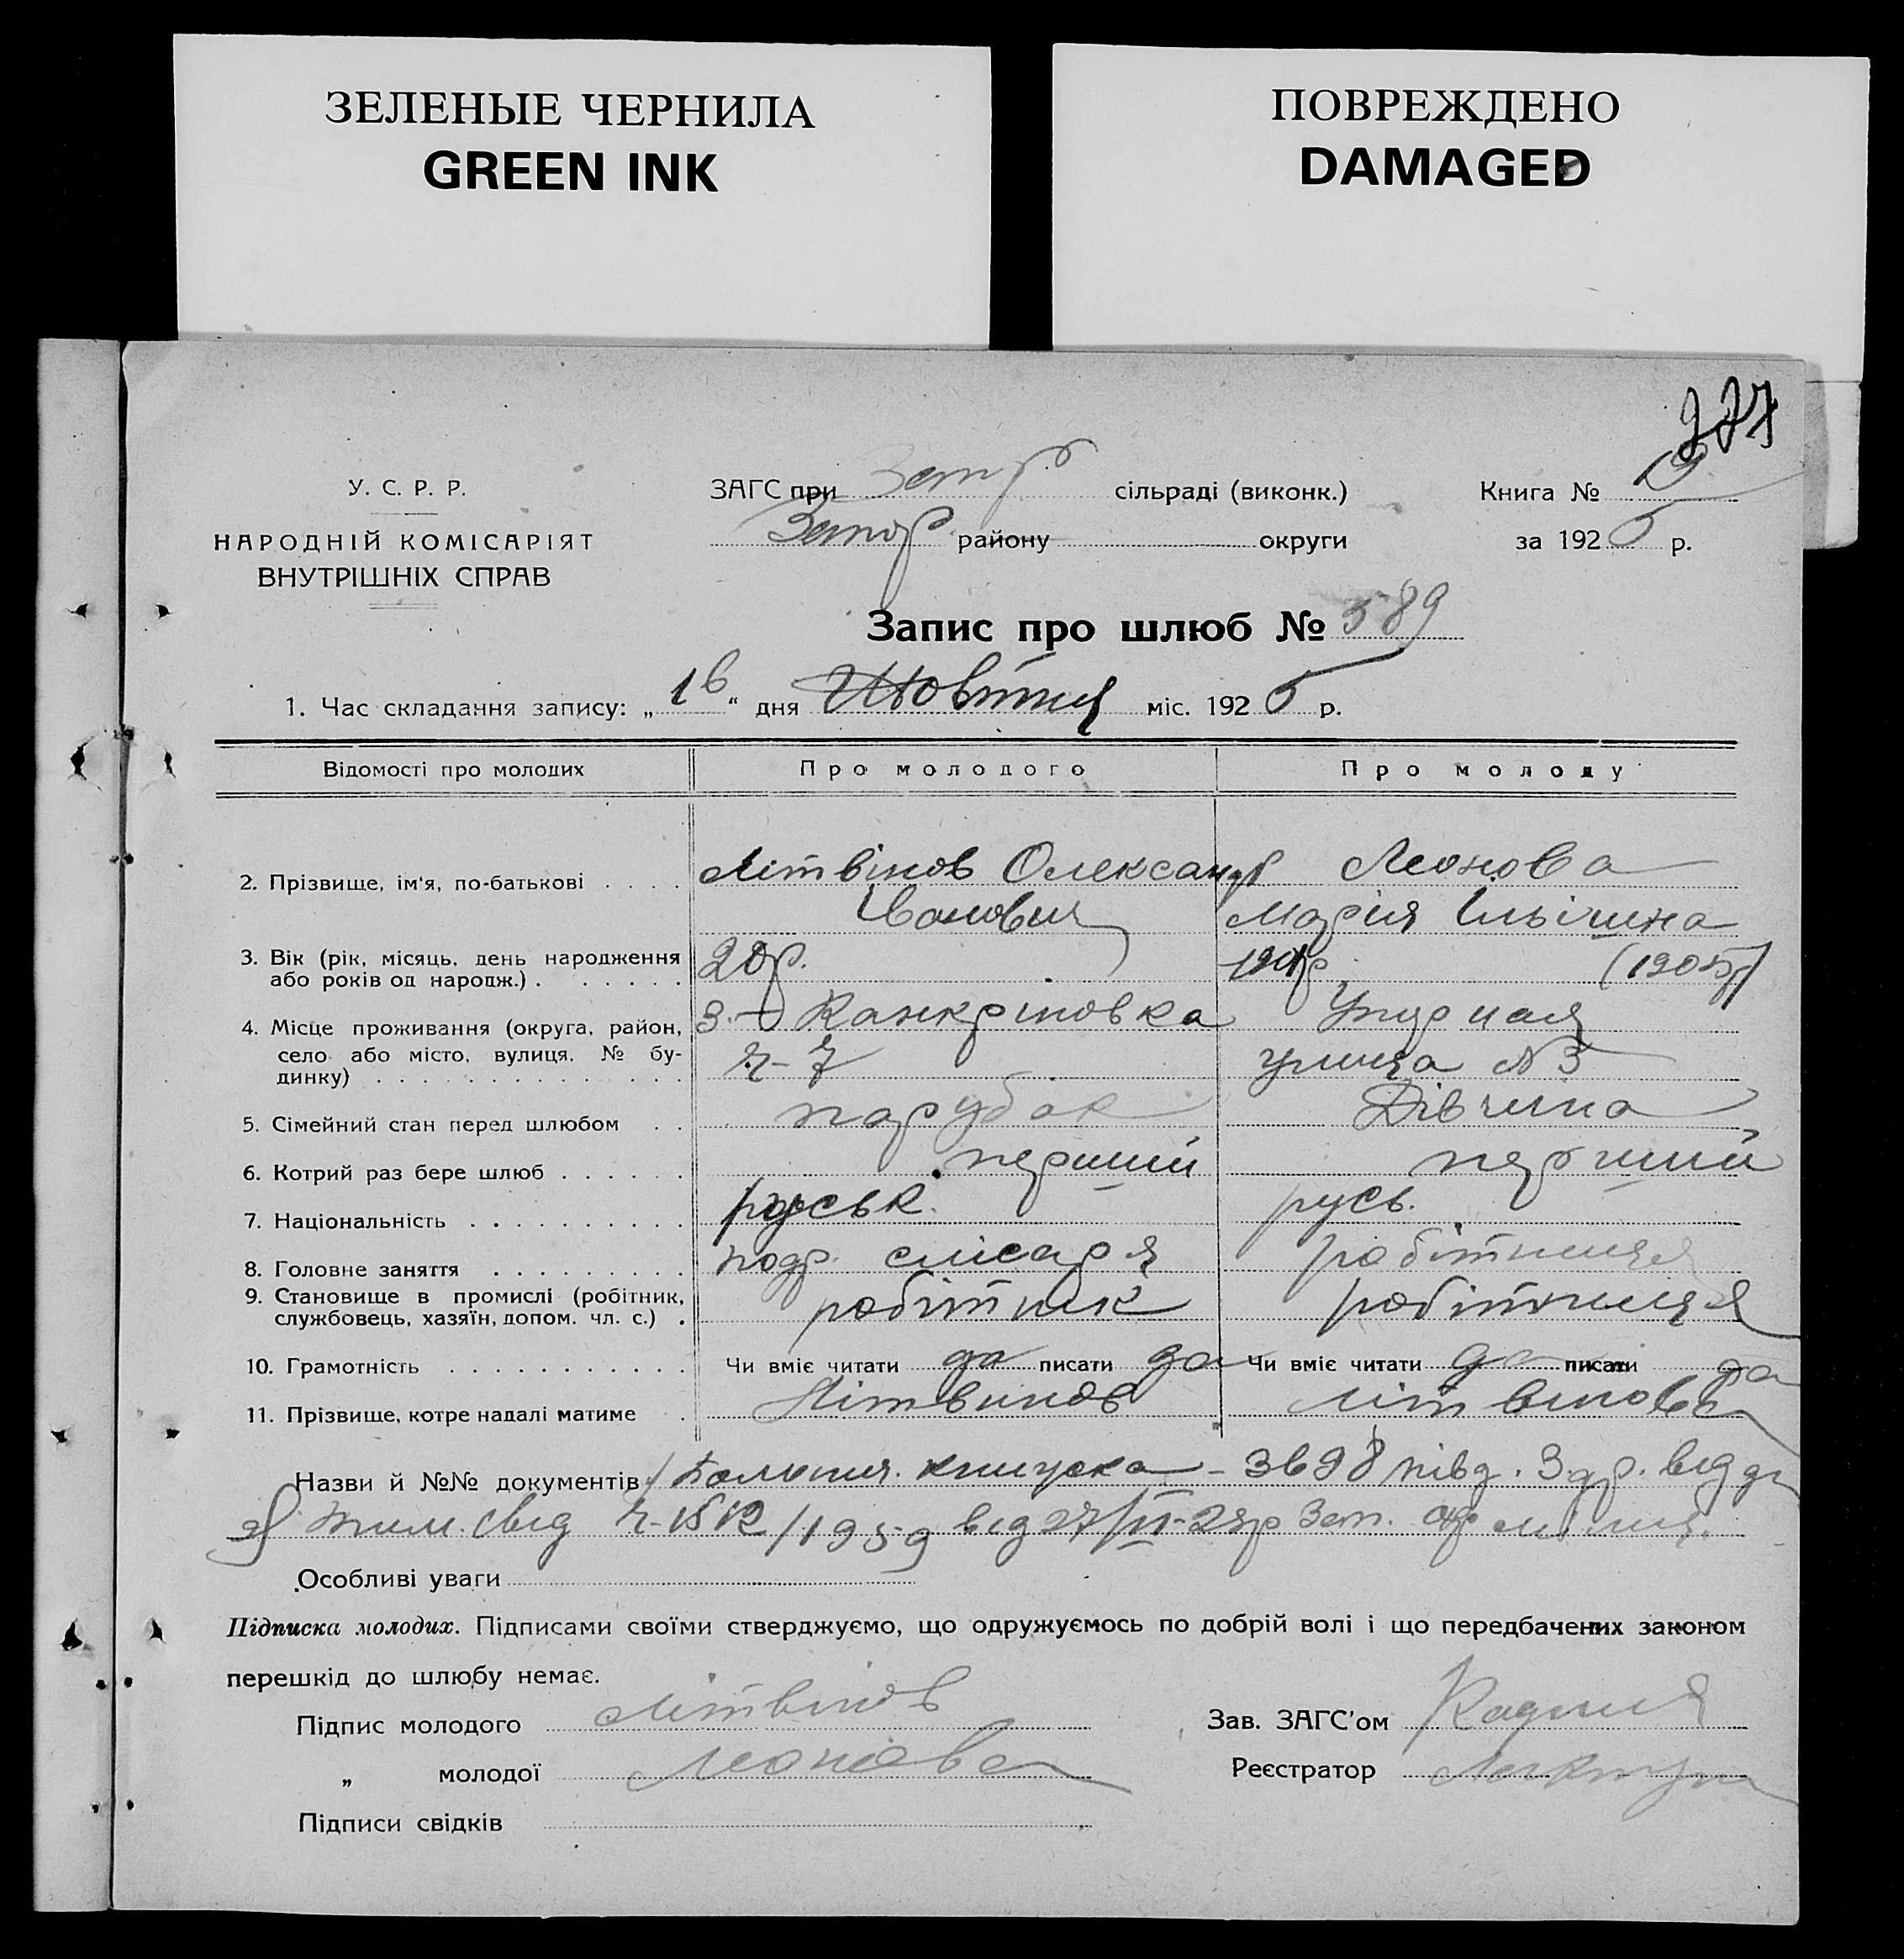 ЗЕЛЕНЫЕ ЧЕРНИЛА
GREEN INK
ПОВРЕЖДЕНО
DAMAGED
227
У. С. Р. Р.
НАРОДНІЙ КОМІСАРІЯТ
ВНУТРІШНІХ СПРАВ
ЗАГС при Запор сільраді (виконк.)
Книга №
Запор району округи
за 1925 р.
Запис про шлюб № 589
1. Час складання запису: „16“ дня Жовтня міс. 1925 р.
Відомості про молодих Про молодого Про молоду
2. Прізвище, ім'я, по-батькові Літвінов Олександр Леонова
Іванович Марія Ільінична
3. Вік (рік, місяць, день народження 20р. (1905р)
або років од народж.)
4. Місце проживання (округа, район, З. Канкріновка
село або місто, вулиця, № бу- ч-7 улиця №3
динку)
5. Сімейний стан перед шлюбом парубок Дівчина
6. Котрий раз бере шлюб перший перший
7. Національність руськ. русь.
8. Головне заняття подр. слісаря робітниця
9. Становище в промислі (робітник, робітник робітниця
службовець, хазяїн, допом. чл. с.)
10. Грамотність Чи вміє читати да писати да Чи вміє читати да писати да
11. Прізвище, котре надалі матиме Літвинов Літвінова
Назви й №№ документів книжка - 3698 півд. З.д.р. від
від 27/VI-25р Зап.
Особливі уваги
Підписка молодих. Підписами своїми стверджуємо, що одружуємось по добрій волі і що передбачених законом
перешкід до шлюбу немає.
Підпис молодого Літвінов
Зав. ЗАГС'ом
„ молодої Леонова
Реєстратор
Підписи свідків